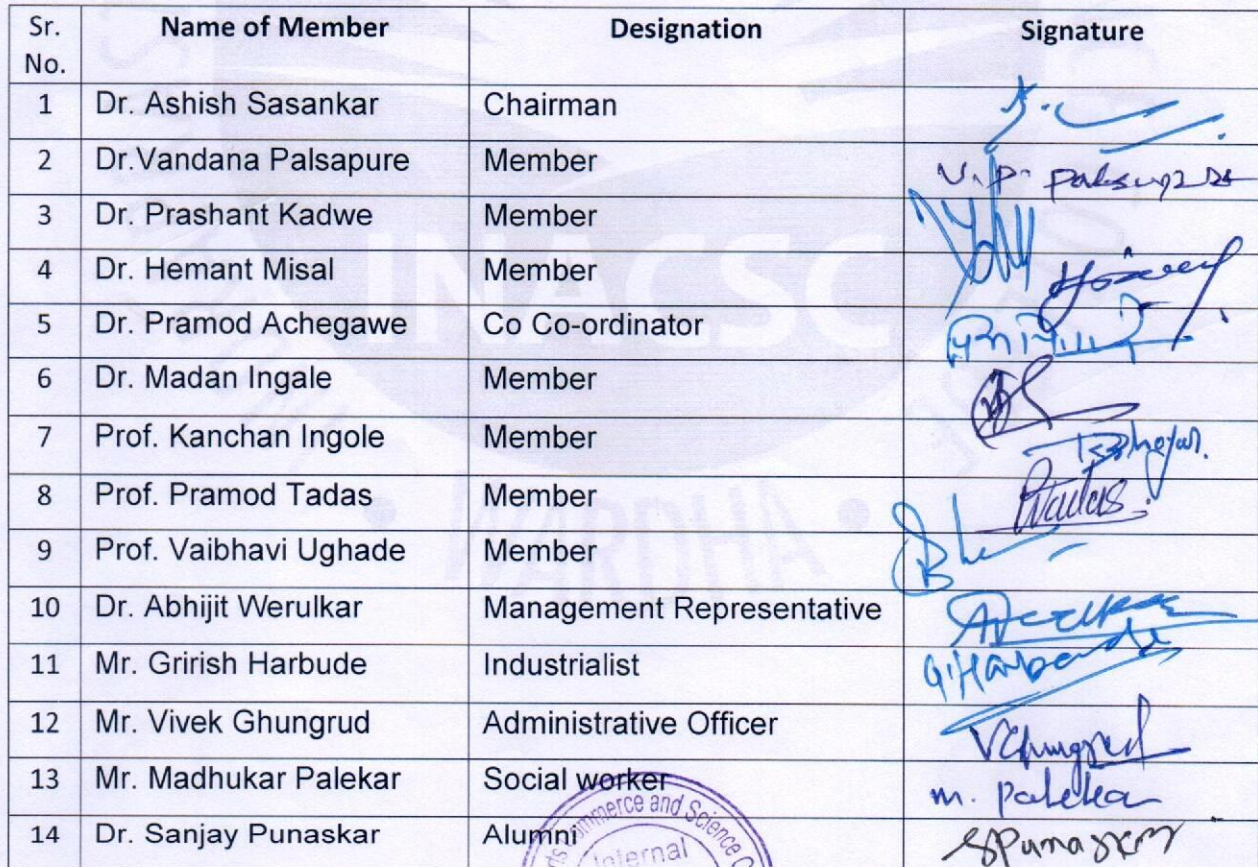 Sr. No. Name of Member Designation Signature
1 Dr. Ashish Sasankar Chairman
2 Dr.Vandana Palsapure Member V.P. Palsapure
3 Dr. Prashant Kadwe Member
4 Dr. Hemant Misal Member
5 Dr. Pramod Achegawe Co Co-ordinator
6 Dr. Madan Ingale Member
7 Prof. Kanchan Ingole Member
8 Prof. Pramod Tadas Member PTadas
9 Prof. Vaibhavi Ughade Member
10 Dr. Abhijit Werulkar Management Representative
11 Mr. Grirish Harbude Industrialist
12 Mr. Vivek Ghungrud Administrative Officer VGhungrud
13 Mr. Madhukar Palekar Social worker m. Palekar
14 Dr. Sanjay Punaskar Alumni SPunaskar
INACSC
WARDHA
Commerce and Science
Internal